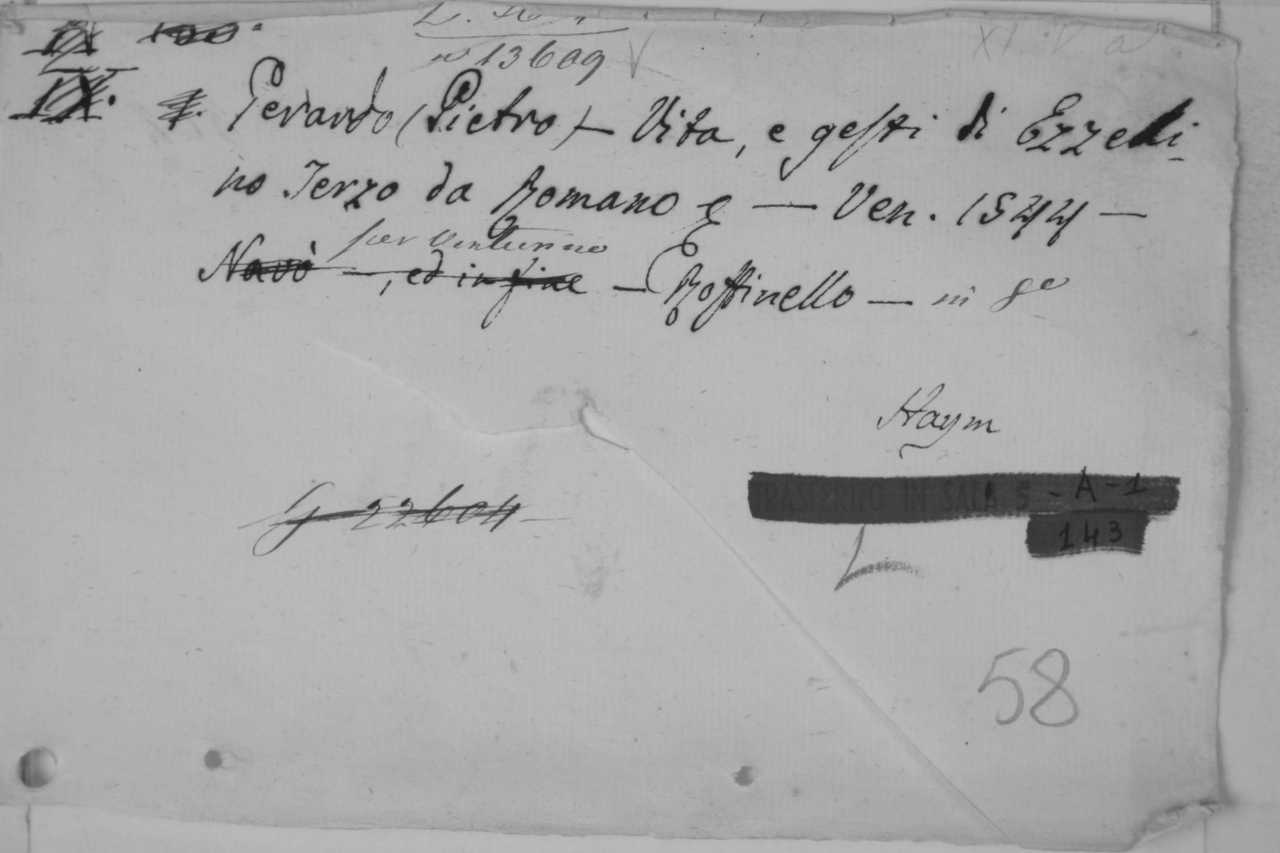 IX 100.
n° 13609 V
IX. Gerardo (Pietro) — Vita, e gesti di Ezzeli-
no Terzo da Romano & — Ven. 1544 —
per Venturino
Navò —, ed in fine — Roffinello — in 8°
Haym
G 22604
TRASFERITO IN SALA 5 - A - 1
143
L
58